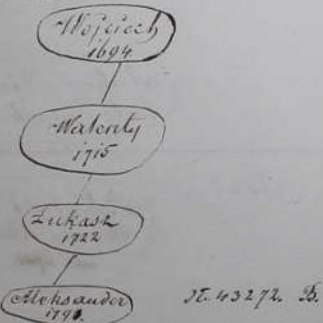 Wojciech
1694.
Walenty
1715
Łukasz
1722
Aleksander
1790.
N. 43272. B.